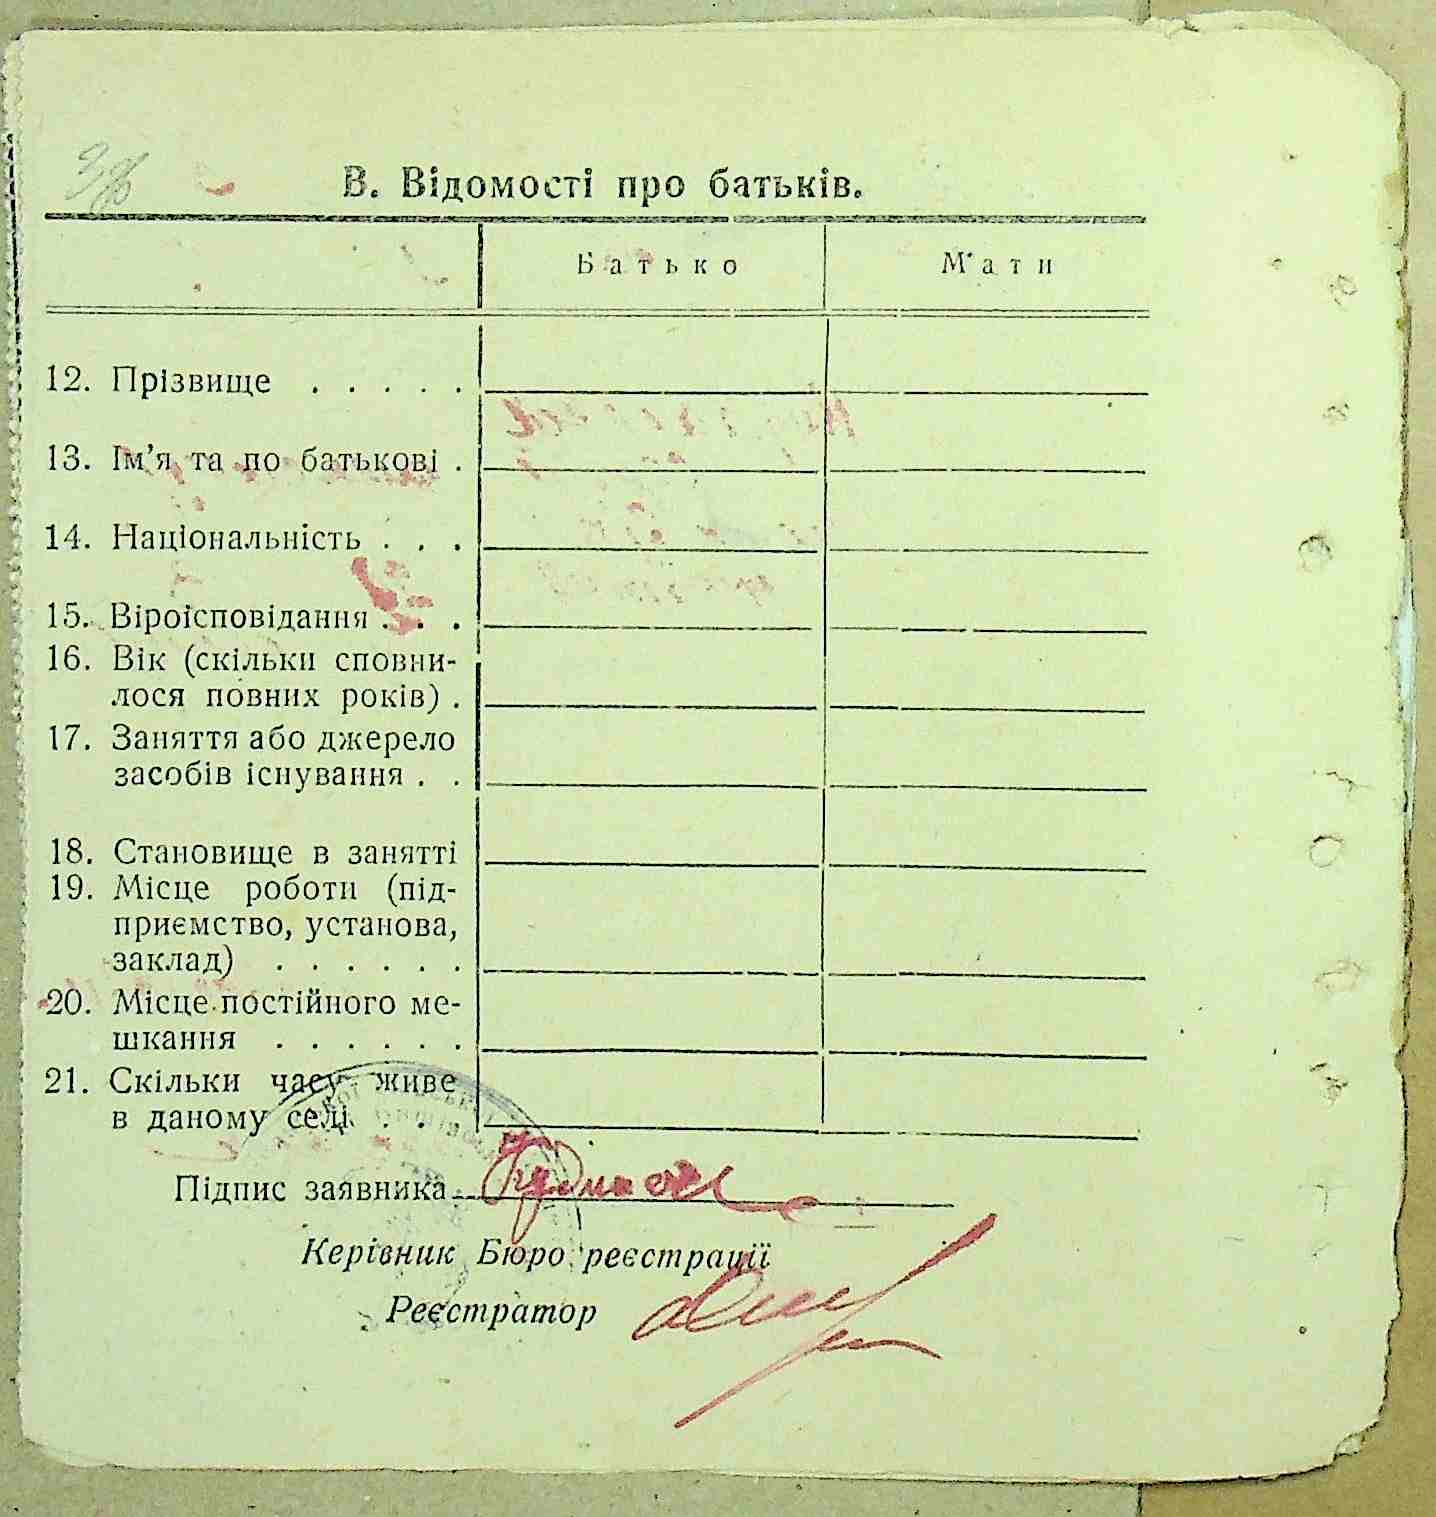 В. Відомості про батьків.
Батько Мати
12. Прізвище . . . . .
13. Ім’я та по батькові .
14. Національність . . .
15. Віроісповідання . . .
16. Вік (скільки сповни-
лося повних років) .
17. Заняття або джерело
засобів існування . .
18. Становище в занятті
19. Місце роботи (під-
приємство, установа,
заклад) . . . . . .
20. Місце постійного ме-
шкання . . . . . .
21. Скільки часу живе
в даному селі . . .
Підпис заявника
Керівник Бюро реєстрації
Реєстратор